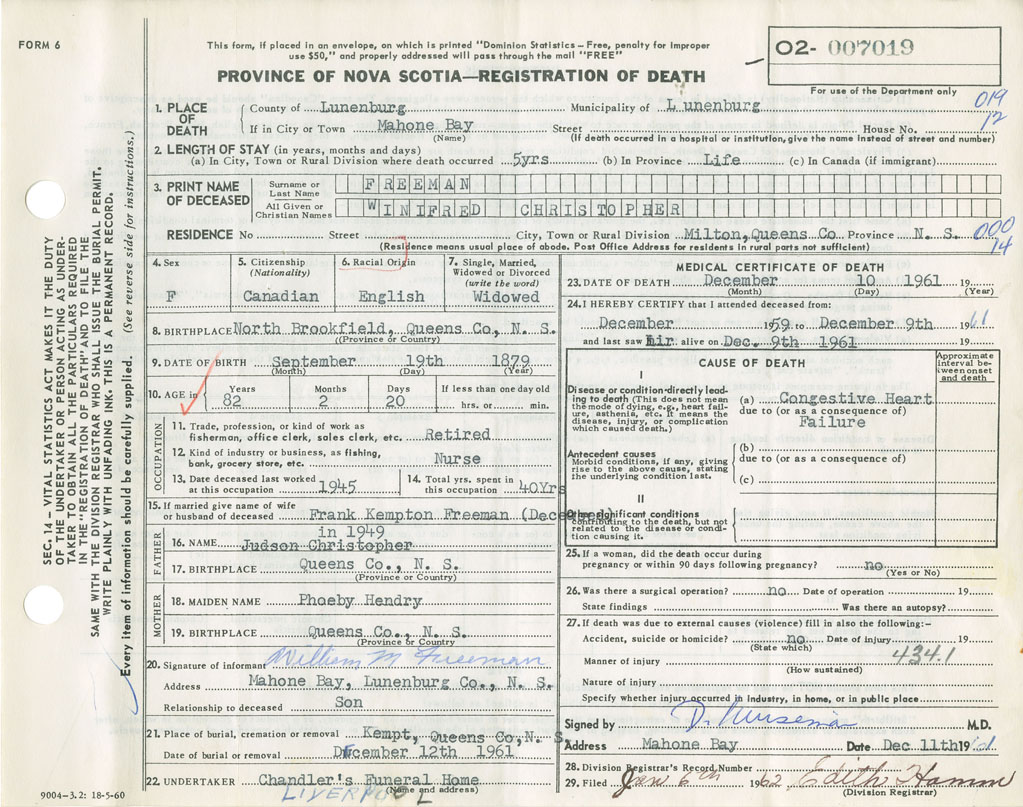 FORM 6
This form, if placed in an envelope, on which is printed "Dominion Statistics – Free, penalty for improper
use $50," and properly addressed will pass through the mail "FREE"
02- 007019
PROVINCE OF NOVA SCOTIA—REGISTRATION OF DEATH
For use of the Department only
019
12
1. PLACE OF DEATH
County of Lunenburg Municipality of Lunenburg
If in City or Town Mahone Bay Street House No.
(Name) (If death occurred in a hospital or institution, give the name instead of street and number)
2. LENGTH OF STAY (in years, months and days)
(a) In City, Town or Rural Division where death occurred 5yrs (b) In Province Life (c) In Canada (if immigrant)
3. PRINT NAME OF DECEASED
Surname or Last Name FREEMAN
All Given or Christian Names WINIFRED CHRISTOPHER
RESIDENCE No Street City, Town or Rural Division Milton, Queens Co Province N. S.
000
14
(Residence means usual place of abode. Post Office Address for residents in rural parts not sufficient)
4. Sex
F
5. Citizenship
(Nationality)
Canadian
6. Racial Origin
English
7. Single, Married, Widowed or Divorced
(write the word)
Widowed
8. BIRTHPLACE North Brookfield, Queens Co, N. S.
(Province or Country)
9. DATE OF BIRTH September 19th 1879
(Month) (Day) (Year)
10. AGE in Years 82 Months 2 Days 20 If less than one day old
hrs. or min.
OCCUPATION
11. Trade, profession, or kind of work as
fisherman, office clerk, sales clerk, etc. Retired
12. Kind of industry or business, as fishing,
bank, grocery store, etc. Nurse
13. Date deceased last worked
at this occupation 1945
14. Total yrs. spent in
this occupation 40Yrs
15. If married give name of wife
or husband of deceased Frank Kempton Freeman
in 1949
FATHER
16. NAME Judson Christopher
17. BIRTHPLACE Queens Co., N. S.
(Province or Country)
MOTHER
18. MAIDEN NAME Phoeby Hendry
19. BIRTHPLACE Queens Co., N. S.
(Province or Country)
20. Signature of informant William M Freeman
Address Mahone Bay, Lunenburg Co., N. S.
Relationship to deceased Son
21. Place of burial, cremation or removal Kempt, Queens Co, N. S.
Date of burial or removal December 12th 1961
22. UNDERTAKER Chandler's Funeral Home
(Name and address)
LIVERPOOL
MEDICAL CERTIFICATE OF DEATH
23. DATE OF DEATH December 10 1961 19
(Month) (Day) (Year)
24. I HEREBY CERTIFY that I attended deceased from:
December 1959 to December 9th 1961
and last saw alive on Dec. 9th 1961
CAUSE OF DEATH
Approximate interval between onset and death
I
Disease or condition directly leading to death (This does not mean
the mode of dying, e.g., heart failure, asthenia, etc. It means the
disease, injury, or complication
which caused death.)
(a) Congestive Heart
due to (or as a consequence of)
Failure
Antecedent causes
Morbid conditions, if any, giving
rise to the above cause, stating
the underlying condition last.
(b)
due to (or as a consequence of)
(c)
II
Other significant conditions
contributing to the death, but not
related to the disease or condition causing it.
25. If a woman, did the death occur during
pregnancy or within 90 days following pregnancy? no
(Yes or No)
26. Was there a surgical operation? no Date of operation 19
State findings Was there an autopsy?
27. If death was due to external causes (violence) fill in also the following:-
Accident, suicide or homicide? no Date of injury 19
(State which)
434.1
Manner of injury
(How sustained)
Nature of injury
Specify whether injury occurred in industry, in home, or in public place
Signed by M.D.
Address Mahone Bay Date Dec 11th 1961
28. Division Registrar's Record Number
29. Filed Jan 6th 1962 Edith Hamm
(Division Registrar)
SEC. 14 – VITAL STATISTICS ACT MAKES IT THE DUTY
OF THE UNDERTAKER OR PERSON ACTING AS UNDER-
TAKER TO OBTAIN ALL THE PARTICULARS REQUIRED
IN THE "REGISTRATION OF DEATH" AND TO FILE THE
SAME WITH THE DIVISION REGISTRAR WHO SHALL ISSUE THE BURIAL PERMIT.
WRITE PLAINLY WITH UNFADING INK. THIS IS A PERMANENT RECORD.
Every item of information should be carefully supplied. (See reverse side for instructions.)
9004-3.2: 18-5-60